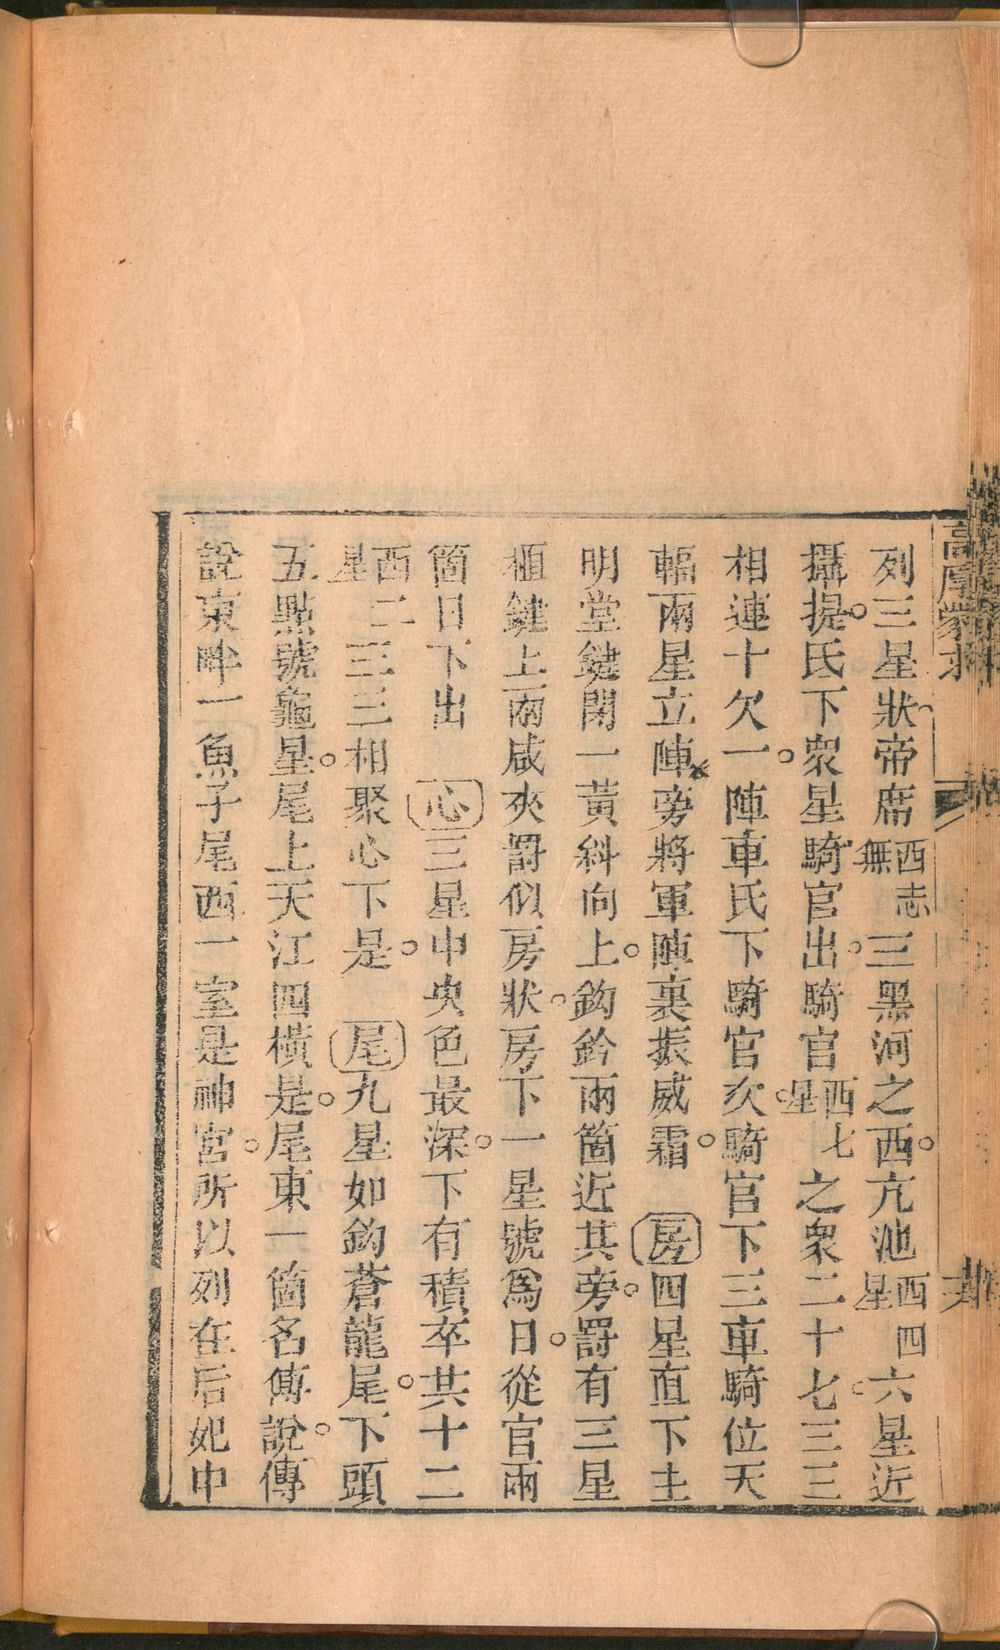 高厚蒙求
列三星狀帝席西志無三黑河之西亢池西四星六星近
攝提氐下衆星騎官出騎官西七星之衆二十七三三
相連十欠一陣車氐下騎官次騎官下三車騎位天
輻兩星立陣旁將軍陣裏振威霜　房四星直下主
明堂鍵閉一黃斜向上鈎鈐兩箇近其旁罰有三星
植鍵上兩咸夾罰似房狀房下一星號爲日從官兩
箇日下出　心三星中央色最深下有積卒共十二
西二星三三相聚心下是　尾九星如鈎蒼龍尾下頭
五點號龜星尾上天江四橫是尾東一箇名傅說傅
說東畔一魚子尾西一室是神宮所以列在后妃中